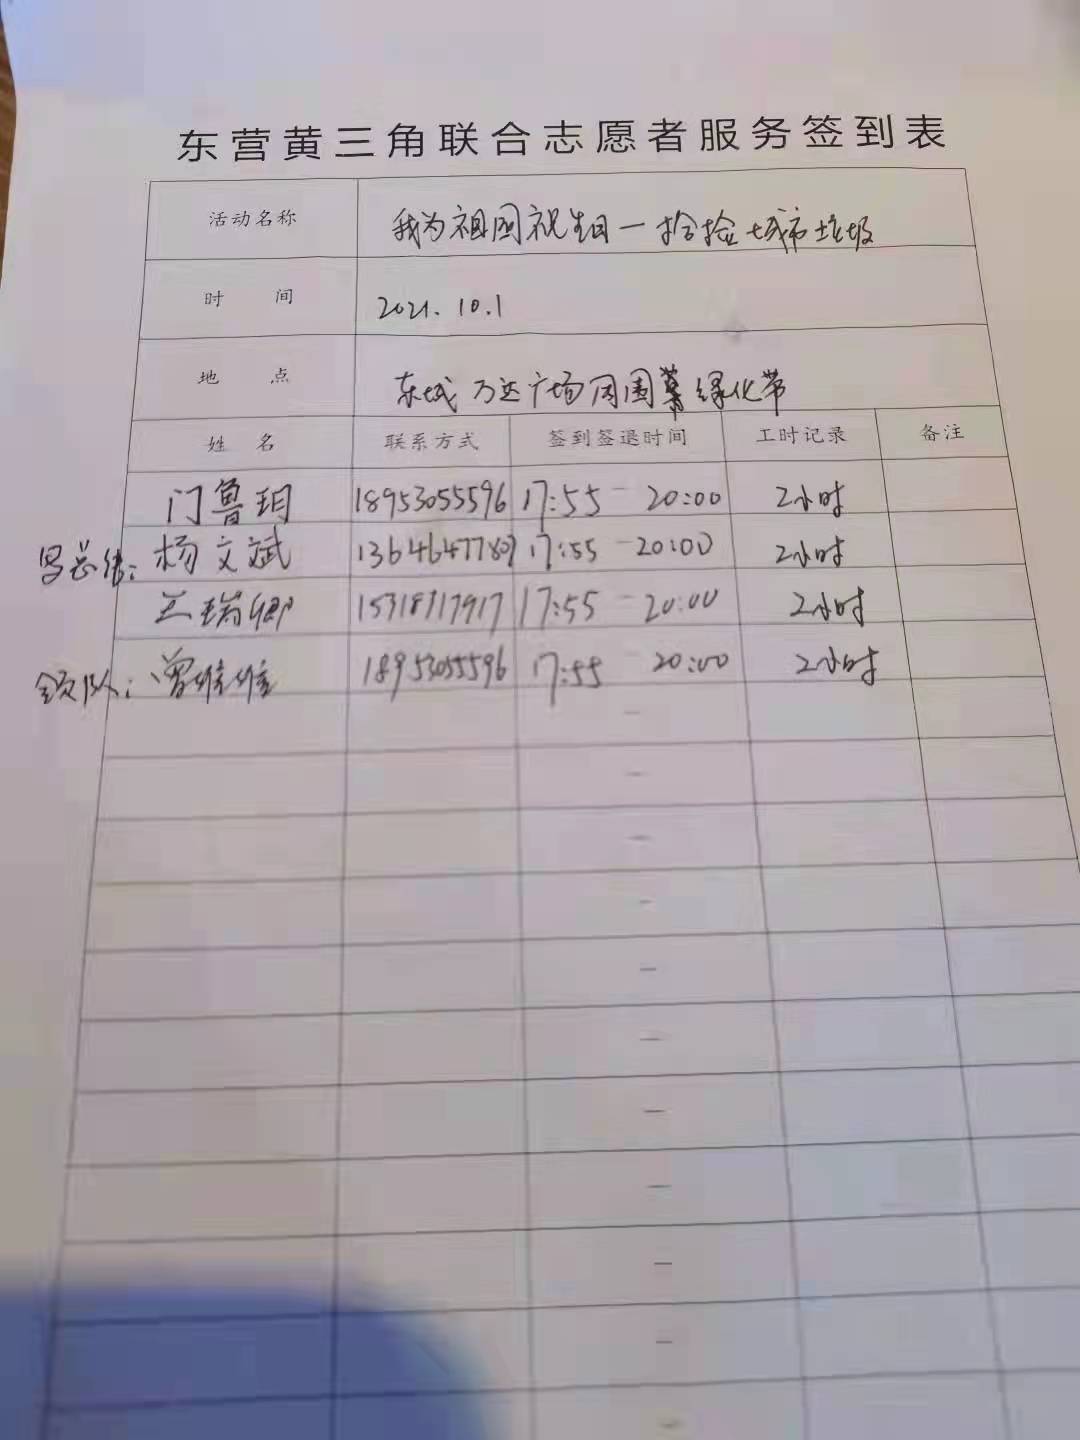 东营黄三角联合志愿者服务签到表
活动名称 我为祖国祝生日一拾捡城市垃圾
时 间 2021.10.1
地 点 东城万达广场周围绿化带
姓 名 联系方式 签到签退时间 工时记录 备注
门鲁玥 18953055596 17:55 - 20:00 2小时
写总结: 杨文斌 13646477809 17:55 - 20:00 2小时
王瑞卿 15318317917 17:55 - 20:00 2小时
领队: 曾维维 18953055596 17:55 - 20:00 2小时